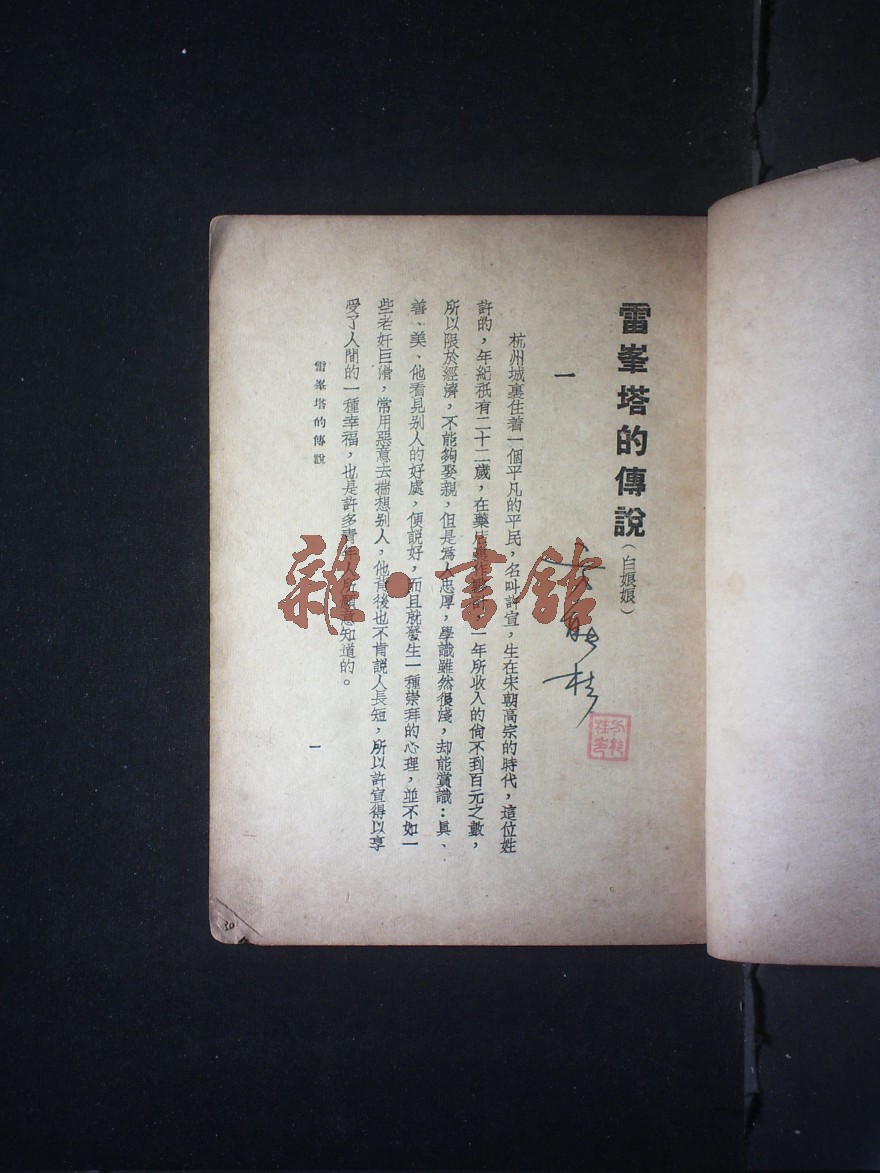 雷峯塔的傳說（白娘娘）
一
杭州城裏住着一個平凡的平民，名叫許宣，生在宋朝高宗的時代，這位姓
許的，年紀祇有二十二歲，在藥店裏作夥計，一年所收入的尙不到百元之數，
所以限於經濟，不能夠娶親，但是爲人忠厚，學識雖然很淺，却能賞識：眞、
善、美、他看見别人的好處，便説好，而且就發生一種崇拜的心理，並不如一
些老奸巨滑，常用惡意去揣想别人，他背後也不肯説人長短，所以許宣得以享
受了人間的一種幸福，也是許多青年人所願意知道的。
雷峯塔的傳說
一
雜·書館
30